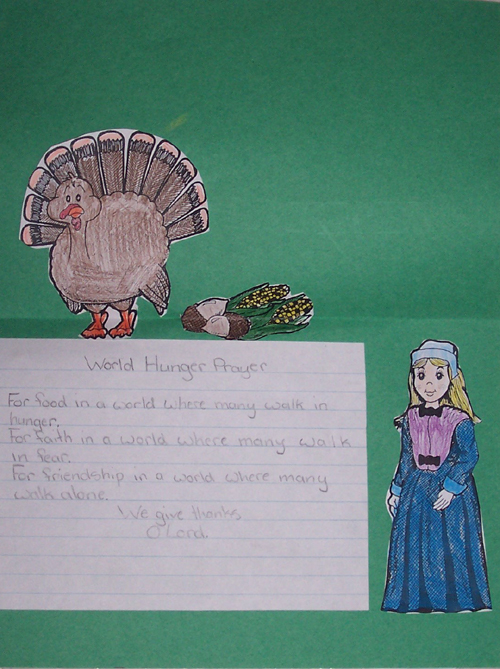 World Hunger Prayer
For food in a world where many walk in
hunger.
For faith in a world where many walk
in fear.
For friendship in a world where many
walk alone.
We give thanks
O Lord.